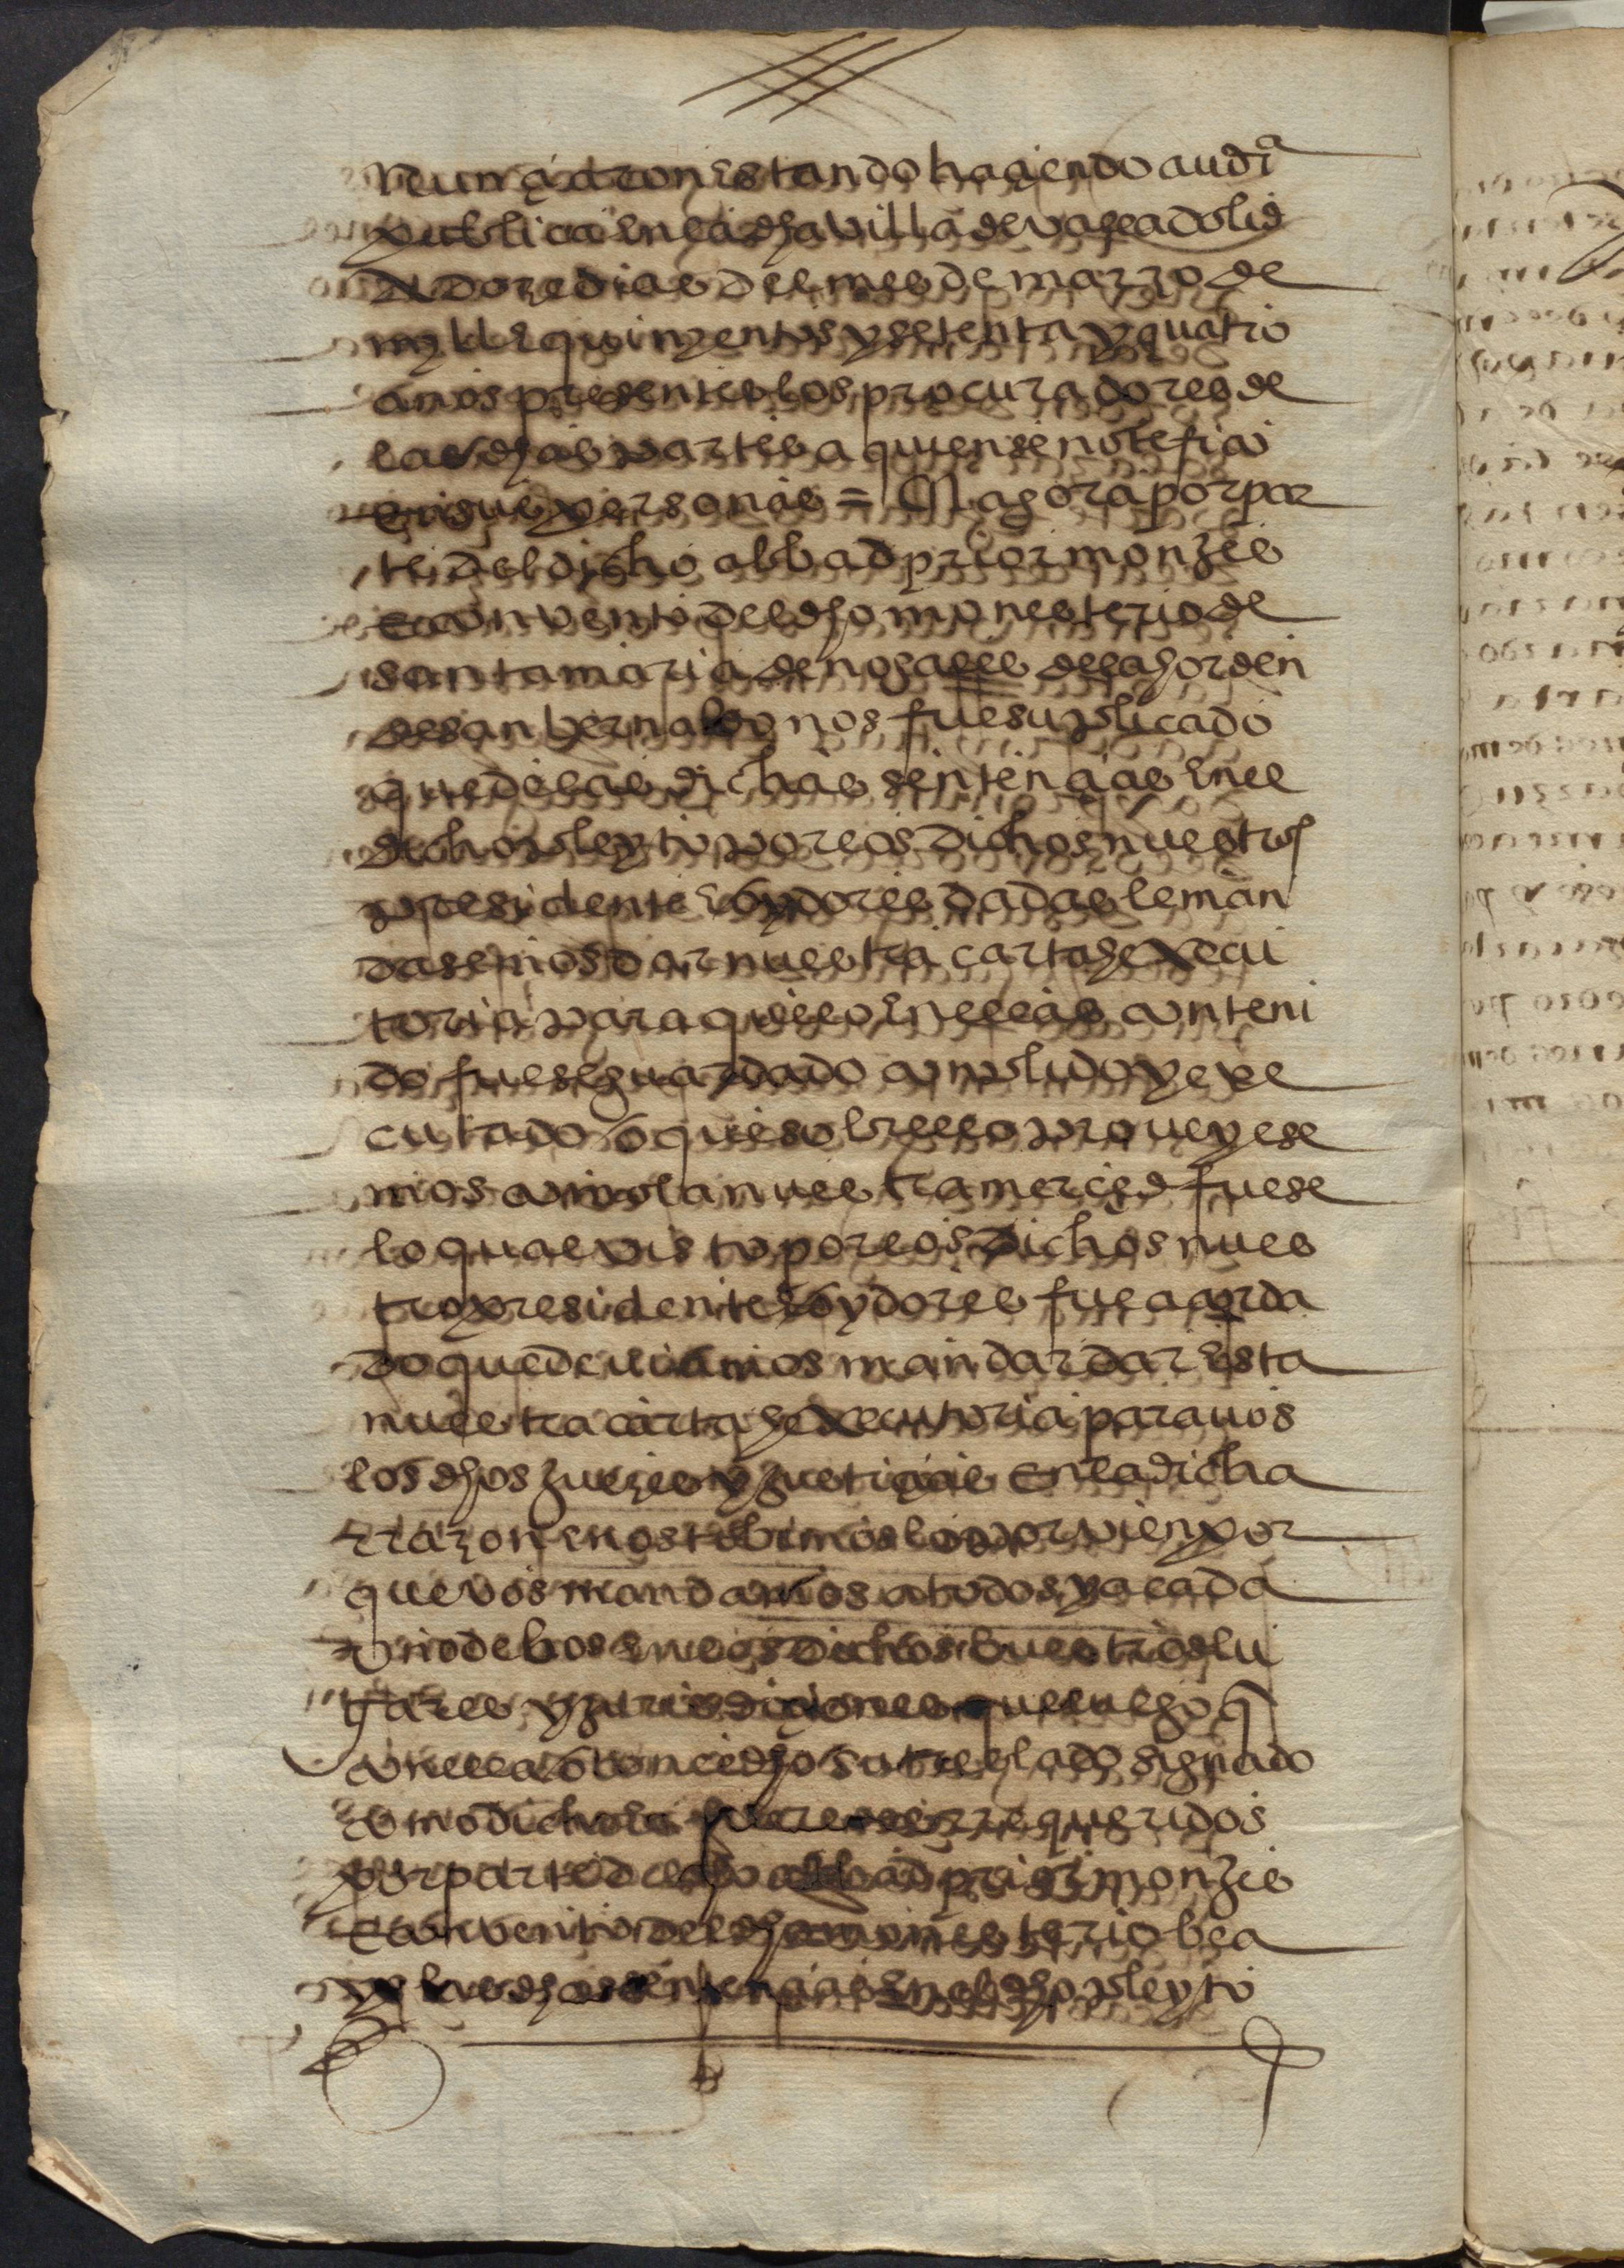 nunçiaron estando haçiendo audiª
publica en la dha villa de valladolid
a doze dias del mes de março de
myll e quinyentos y setenta y quatro
años presentes los procuradores de
las dhas partes a quien se notefico
en sus personas = E agora por par
te del dicho abbad prior monges
e convento del dho monesterio de
santa maria de nogales de la horden
de san bernaldo nos fue suplicado
que de las dichas sentençias en el
dicho pleyto por los dichos nuestros
presidente e oydores dadas le man
dasemos dar nuestra carta hexecu
toria para que lo en ellas conteni
do fuese guardado conplido y exe
cutado o que sobre ello proueyese
mos como la nuestra merced fuese
lo qual visto por los dichos nues
tro presidente e oydores fue acorda
do que deviamos mandar dar esta
nuestra carta hexecutoria para vos
los dhos juezes y justiçias en la dicha
rrazon e nos tobimoslo por vien por
que vos mandamos a todos y a cada
vno de bos en los dichos vuestros lu
gares y juridiçiones que luego q
con ella o con el dho su treslado signado
como dicho es fueredes rrequeridos
por parte del dho abbad prior monges
e convento del dho monesterio bea
ys las dhas sentençias en el dho pleyto